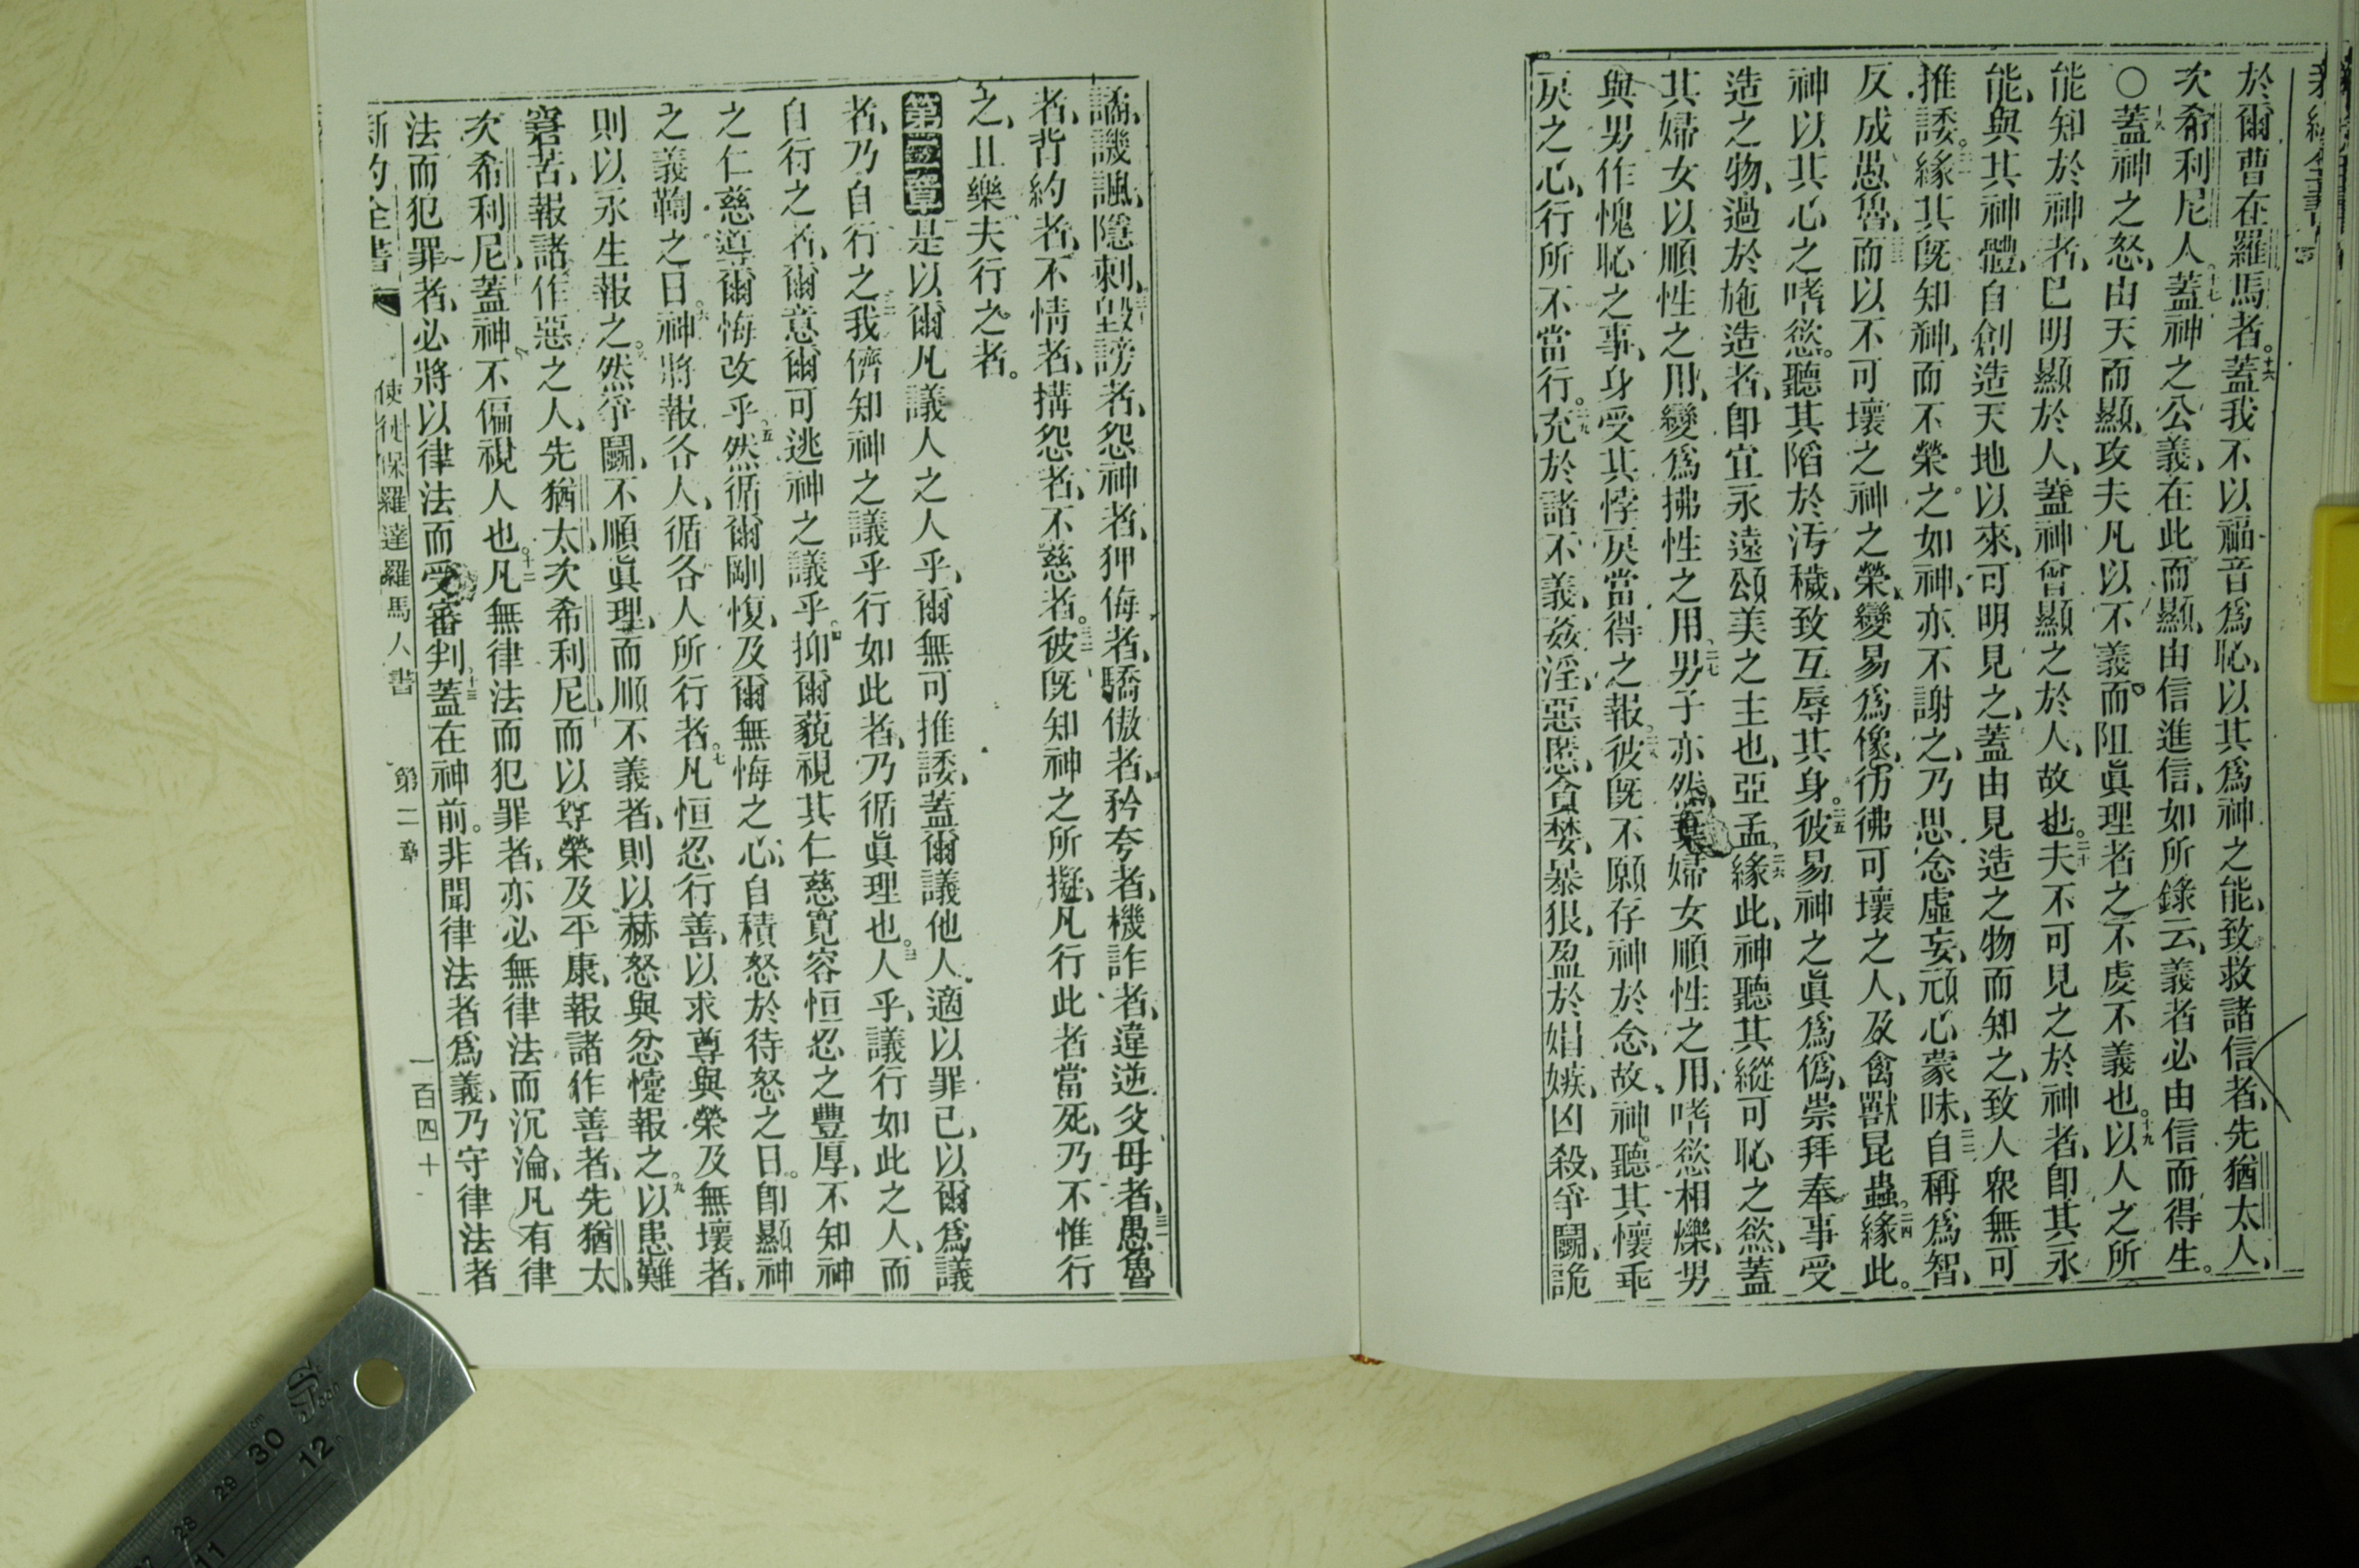 於爾曹在羅馬者。十六蓋我不以福音爲恥、以其爲神之能、致救諸信者、先猶太人、
次希利尼人。十七蓋神之公義、在此而顯、由信進信、如所錄云、義者必由信而得生。
〇十八蓋神之怒、由天而顯、攻夫凡以不義而阻眞理者之不虔不義也。十九以人之所
能知於神者、已明顯於人、蓋神曾顯之於人、故也。二十夫不可見之於神者、卽其永
能、與其神體、自創造天地以來、可明見之、蓋由見造之物而知之、致人衆無可
推諉。二一緣其旣知神、而不榮之如神、亦不謝之、乃思念虛妄、頑心蒙昧、二二自稱爲智、
反成愚魯、二三而以不可壞之神之榮、變易爲像、彷彿可壞之人、及禽獸昆蟲。二四緣此。
神以其心之嗜慾。聽其陷於汚穢、致互辱其身。二五彼易神之眞爲僞、崇拜奉事受
造之物、過於施造者、卽宜永遠頌美之主也、亞孟、二六緣此、神聽其縱可恥之慾、蓋
其婦女以順性之用、變爲拂性之用、二七男子亦然、棄婦女順性之用、嗜慾相爍、男
與男作愧恥之事、身受其悖戾當得之報。二八彼旣不願存神於念、故神。聽其懷乖
戾之心、行所不當行。二九充於諸不義、姦淫、惡慝、貪婪、暴狠、盈於娼嫉、凶殺、爭鬭、詭
譎、譏諷、隱刺、三十毀謗者、怨神者、狎侮者、驕傲者、矜夸者、機詐者、違逆父母者、三一愚魯
者、背約者、不情者、搆怨者、不慈者。三二彼旣知神之所擬、凡行此者當死、乃不惟行
之、且樂夫行之者。
第二章是以爾凡議人之人乎、爾無可推諉、蓋爾議他人、適以罪己、以爾爲議
者、乃自行之、二我儕知神之議乎行如此者、乃循眞理也。三人乎、議行如此之人、而
自行之者、爾意爾可逃神之議乎。四抑爾藐視其仁慈寬容恒忍之豐厚、不知神
之仁慈、導爾悔改乎、五然循爾剛愎、及爾無悔之心、自積怒於待怒之日。卽顯神
之義鞫之日。六神將報各人、循各人所行者。七凡恒忍行善、以求尊與榮及無壞者、
則以永生報之。八然爭鬭、不順眞理、而順不義者、則以赫怒與忿懥報之。九以患難
窘苦、報諸作惡之人、先猶太、次希利尼、十而以尊榮及平康、報諸作善者、先猶太、
次希利尼、十一蓋神不偏視人也。十二凡無律法而犯罪者、亦必無律法而沉淪、凡有律
法而犯罪者、必將以律法而受審判、十三蓋在神前。非聞律法者爲義、乃守律法者
新約全書 使徒保羅達羅馬人書 第二章 一百四十